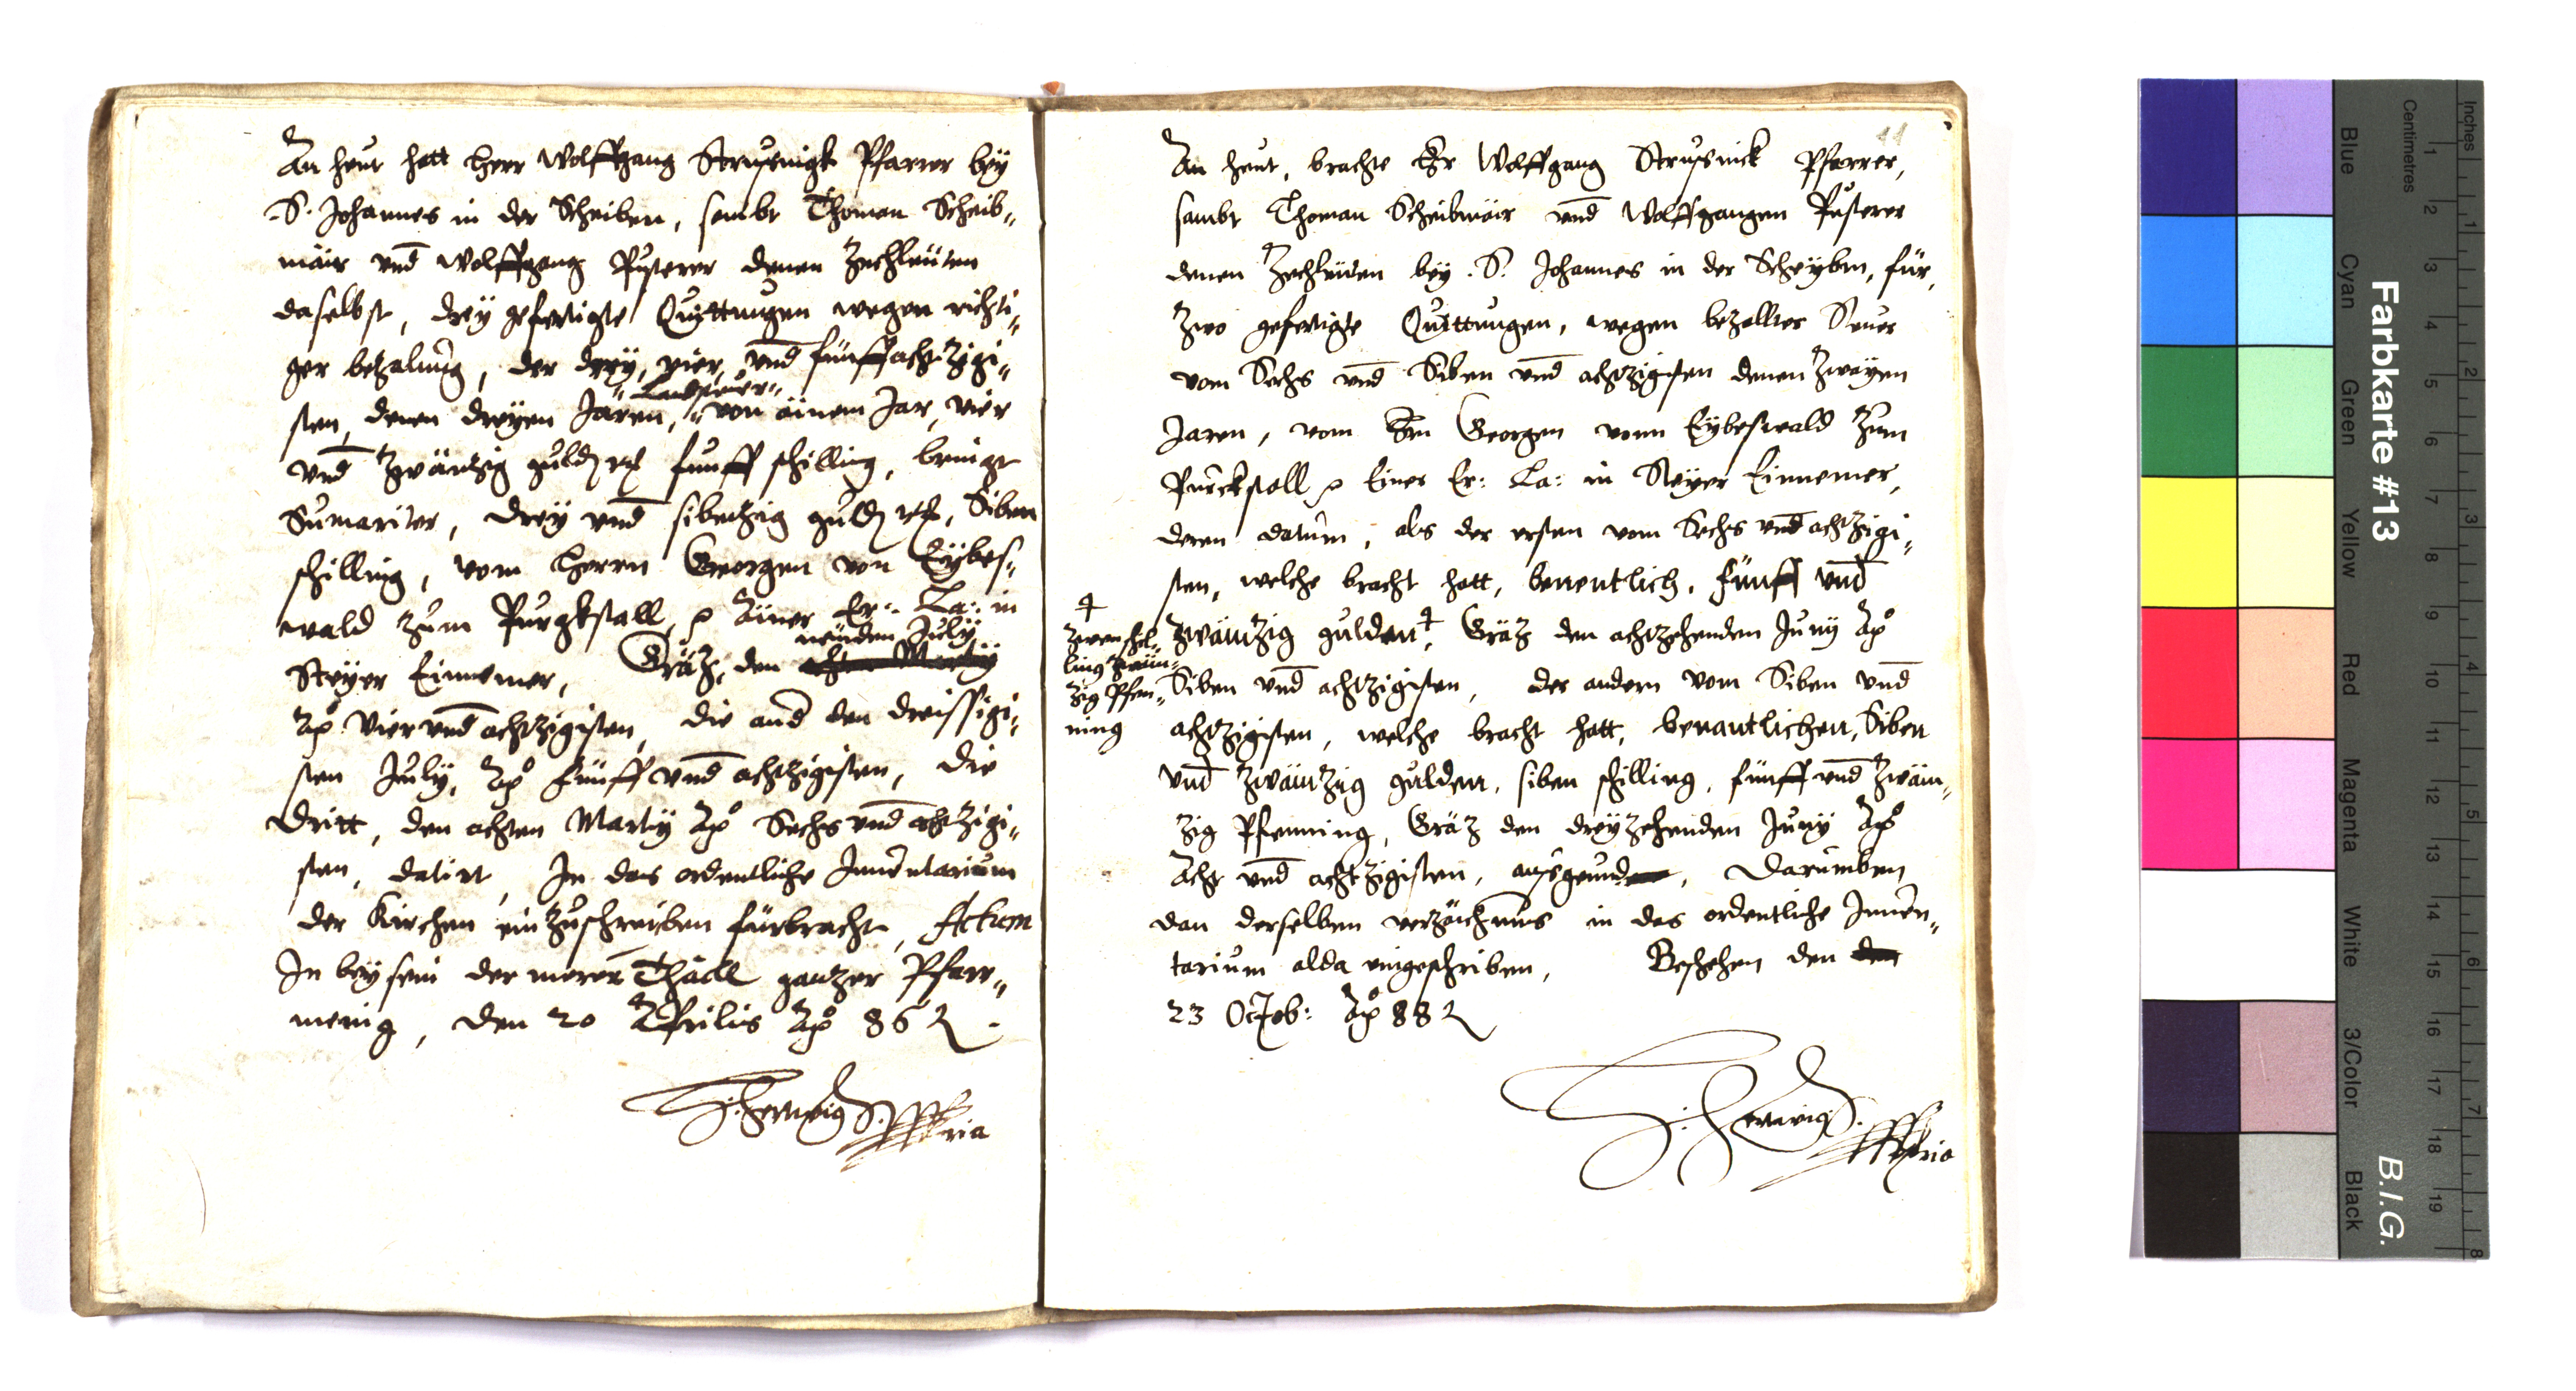 An heut hatt Herr Wolffgang Strusnigk Pfarrer beÿ
.S. Johannes in der Scheiben, sambt Thoman Scheib„
mäir vnd Wolffgang Pusterer denen Zechleüten
daselbst, dreÿ gefertigte Quittungen wegen richti„
ger bezalung, der dreÿ, vier, vnd fünffachtzigi„
„Landsteuer„
sten, denen dreÿen Jaren, „von äinem Jar, vier
vnd zwäntzig guld fünff schilling, bringt
Sumariter, dreÿ vnd sibentzig guld, Siben
schilling, vom Herrn Georgen von Eÿbes„
wald zum Purgkstall, Äiner Er: La: in
neünden Julÿ
Steÿer Einnemer, Gräz, den achten Martÿ
Aō Vier vnd achtzigisten, die and den dreissigi„
sten Julÿ, Aō fünff vnd achtzigisten, die
dritt, den achten Martÿ Aō Sechs vnd achtzigi„
sten, datirt, In das ordentliche Inuentarium
der Kirchen einzuschreiben fürbracht, Actum
In beÿsein der merer Thäill gantzer Pfarr„
menig, den 20 Aprilis Aō 86
Hertwig
11
An heut, brachte Er Wolffgang Strusnick Pfarrer,
sambt Thoman Scheibmäir vnd Wolffgangen Pusterer
denen Zechleüden beÿ .S. Johannes in der Scheÿben, für,
Zwo gefertigte Quittungen, wegen bezallter Steuer
vom Sechs vnd Siben vnd achtzigisten denen zwaÿen
Jaren, vom Hrn Georgen vonn Eÿbeswald zum
Purckstall Einer Er: La: in Steÿer Einnemer,
deren datum, als der ersten vom Sechs vnd achtzigi„
sten, welche bracht hatt, benentlich, fünff vnd
zwäntzig gulden, Gräz den achtzehenden Junÿ Aō
Zwen schil„
ling zwän„
zig Pfen„
ning
Siben vnd achtzigisten, der andern vom Siben vnd
achtzigisten, welche bracht hatt, benantlichen, Siben
vnd zwäntzig gulden, siben schilling, fünff vnd zwän„
zig Pfenning, Gräz den dreÿzehenden Junÿ Aō
Acht vnd achtzigisten, Darumben
dan derselben verzäichnus in das ordentliche Inuen„
tarium alda eingeschriben, Beschehen den den
23 Octob: Aō 88
Hertwig
Farbkarte #13
B.I.G.
Blue
Cyan
Green
Yellow
Red
Magenta
White
3/Color
Black
Centimetres
Inches
1 2 3 4 5 6 7 8 9 10 11 12 13 14 15 16 17 18 19
1 2 3 4 5 6 7 8